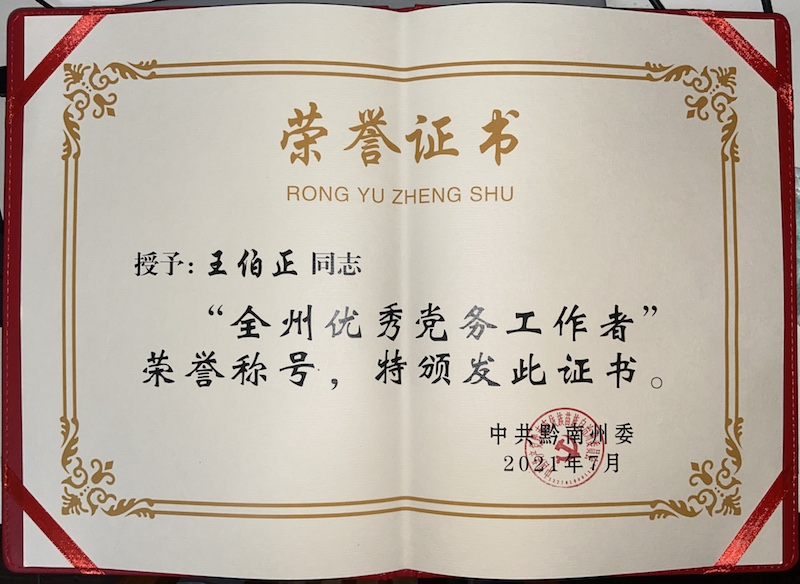 荣誉证书
RONG YU ZHENG SHU
授予：王伯正 同志
“全州优秀党务工作者”
荣誉称号，特颁发此证书。
中共黔南州委
2021年7月